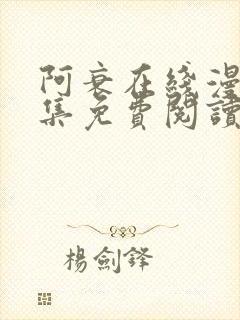 阿衰在綫漫
集免費閱讀
楊劍鋒